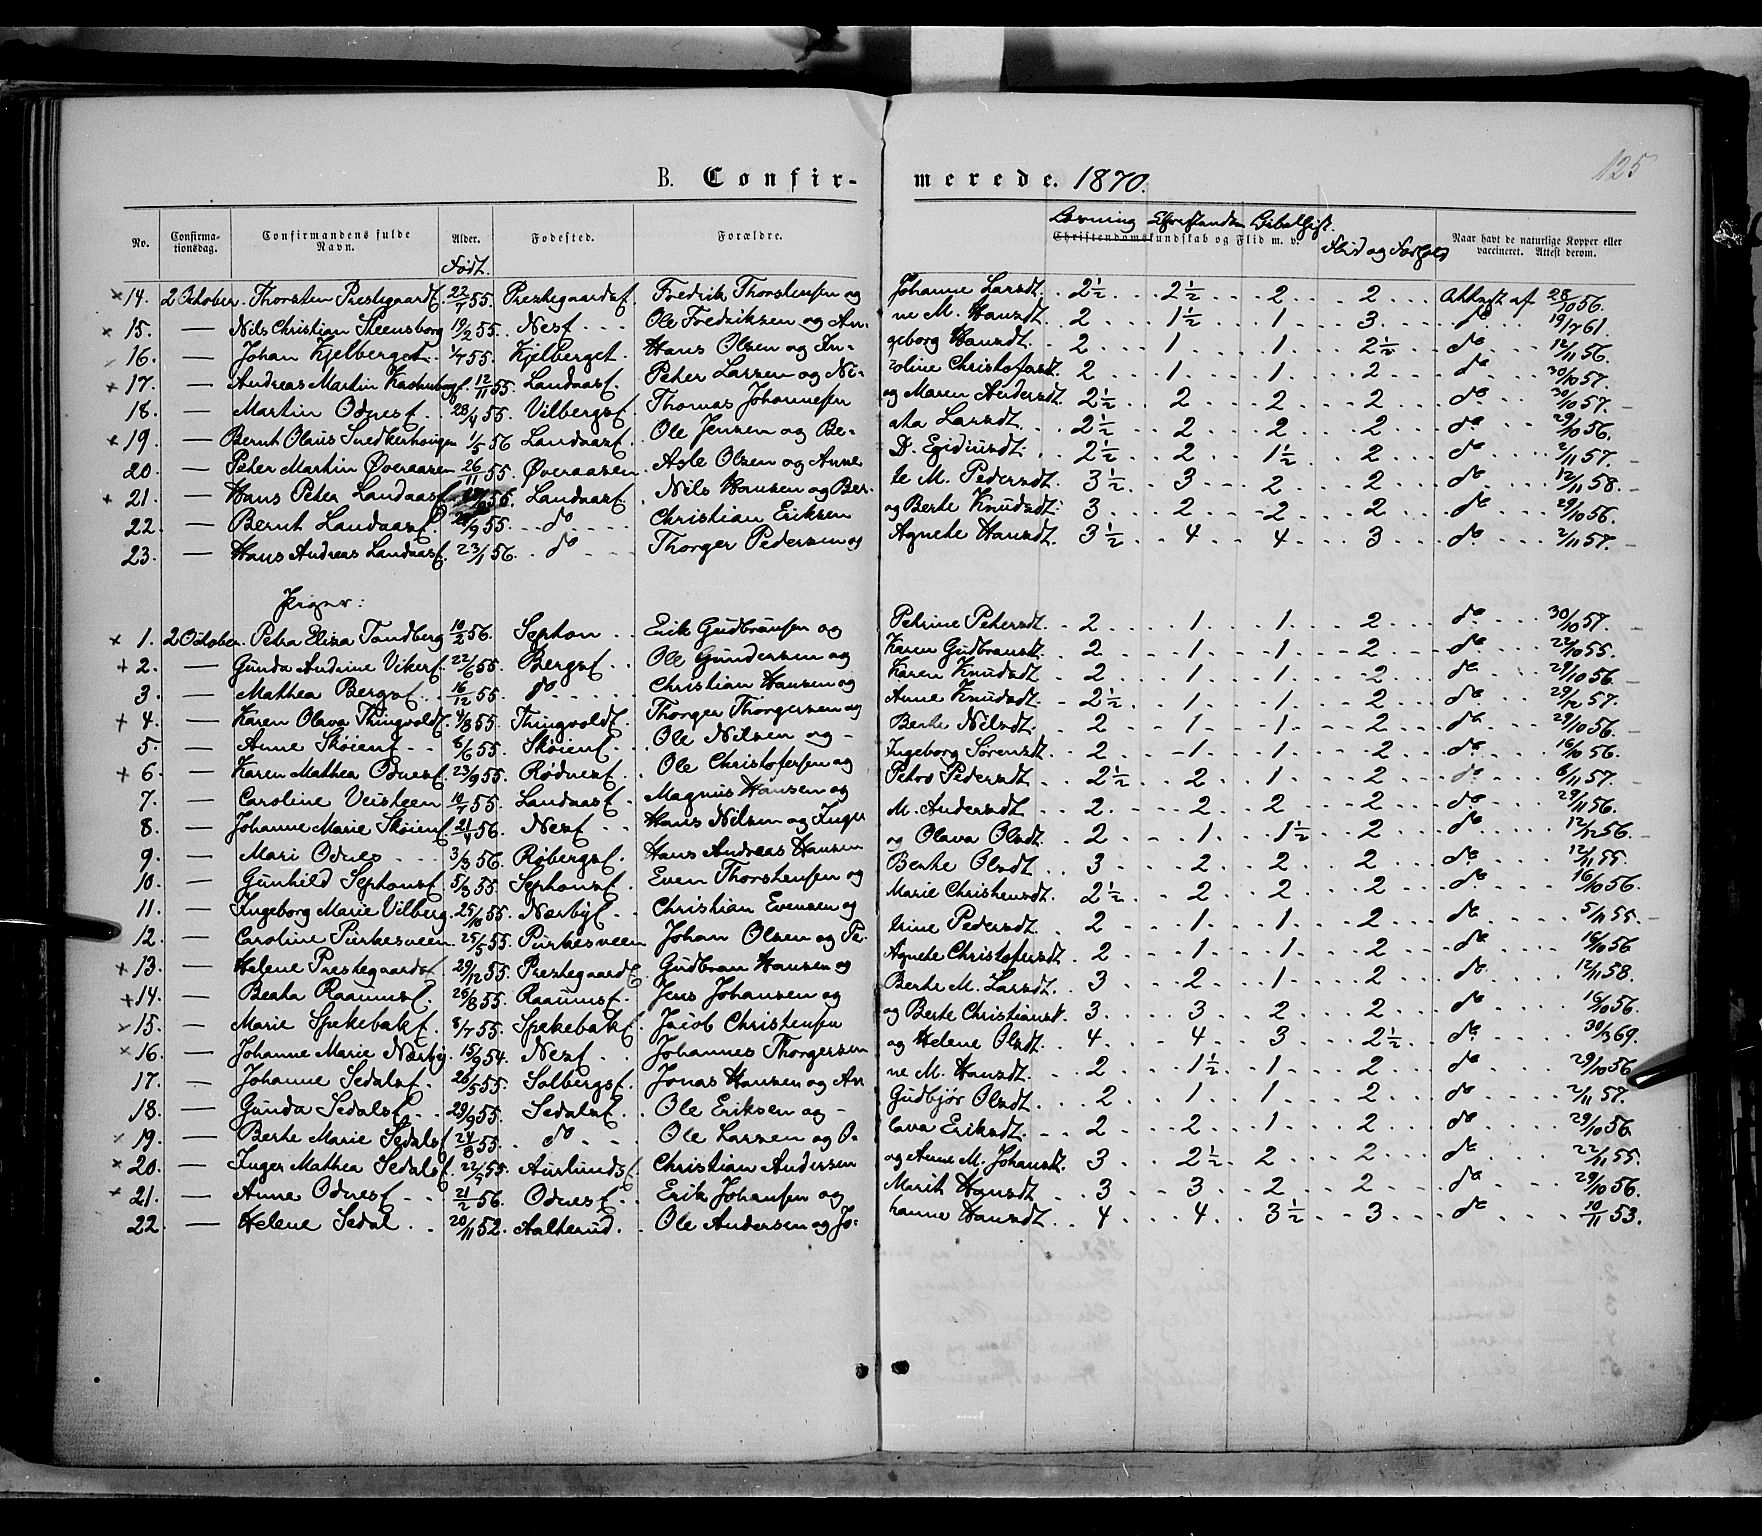 125
B. Confir- merede. 1870.
Læsning
No. Confirma-tionsdag. Confirmandens fulde Navn. Alder. Født. Fodested. Forældre. Christendomskundskab og Flid m. v. Flid og Forhold Naar havt de naturlige Kopper eller vaccineret. Attest derom.
14. 2 October. Thorsten Prestegaardsf. 22/7 55. Prestegaardsf. Fredrik Thorstensen og Johanne Larsdt. 2½ 2½ 2 2 Attest af 28/10 56.
15. — Nils Christian Steensborg 19/2 55. Nesf. Ole Fredriksen og An- ne M. Hansdt. 2 1½ 1 3 do 19/7 61.
16. — Johan Kjelberget. 1/7 55. Kjelberget. Hans Olsen og In- geborg Hansdt. 2 1 1 2½ do 12/11 56.
17. — Andreas Martin 12/11 55. Landaasf. Peter Larsen og Ni- coline Christofersdt. 2 1 1 2 do 30/10 57.
18. — Martin Odnesf. 28/4 55. Vilbergsf. Thomas Johannesen og Maren Andersdt. 2½ 2 2 2 do 30/10 57.
19. — Bernt Olaus Snedkerhougen 1/5 56 Landaasf. Ole Jensen og Be- ata Larsdt. 2½ 2 2 2 do 29/10 56.
20. — Peter Martin Øveraasen 26/11 55 Øveraasen. Asle Olsen og Anne D. Egidiusdt. 2½ 2 1½ 2 do 2/11 57.
21. — Hans Peter Landaasf. 56. Landaasf. Nils Hansen og Ber- te M. Pedersdt. 3½ 3 2 2 do 12/11 58.
22. — Bernt Landaasf. 9 55. do Christian Eriksen og Berte Knudsdt. 3 2 2 2 do 29/10 56.
23. — Hans Andreas Landaasf. 23/1 56. do Thorger Pedersen og Agnete Hansdt. 3½ 4 4 3 do 2/11 57.
Piger:
1. 2 October. Petra Elisa Tandberg 10/2 56. Sephon Erik Gudbransen og Petrine Petersdt. 2 1 1 2 do 30/10 57.
2. — Gunda Andrine Vikersf. 22/6 55. Bergsf. Ole Gundersen og Karen Gudbransdt. 2 1 1 2 do 22/10 55.
3. — Mathea Bergsf. 16/12 55. do Christian Hansen og Karen Knudsdt. 2 1 1 2 do 29/10 56.
4. — Karen Olava Thingvoldsf. 4/8 55. Thingvoldsf. Thorger Thorgersen og Anne Knudsdt. 2½ 1 1 2 do 29/12 57.
5. — Anne Skøiensf. 6/6 55. Skøiensf. Ole Nilsen og - Berte Nilsdt. 2 1 1 2 do 29/10 56.
6. — Karen Mathea Odnesf. 23/9 55. Rødnesf. Ole Christofersen og Ingeborg Sørensdt. 2 1 1 2 do 16/10 56.
7. — Caroline Veisteen 10/7 55. Landaasf. Magnus Hansen og Petro. Pedersdt. 2½ 2 1 2 do 6/11 57.
8. — Johanne Marie Skøiensf. 21/4 56. Nesf. Hans Nilsen og Inger M. Andersdt. 2 2 2 2 do 29/11 56.
9. — Mari Odnes 3/3 56. Røbergsf. Hans Andreas Hansen og Olava Olsdt. 2 1 1½ 2 do 12/12 56.
10. — Gunhild Sephonsf. 5/3 55. Sephonsf. Even Thorstensen og Berthe Olsdt. 3 2 2 2 do 12/11 55.
11. — Ingeborg Marie Vilberg. 25/10 55. Nærbysf. Christian Evensen og Marie Christensdt. 2½ 2 2 2 do 16/10 56.
12. — Caroline Purkesveen 25/5 55. Purkesveen Johan Olsen og Pe- trine Pedersdt. 2 1 1 2 do 5/11 55.
13. — Helene Prestegaardsf. 29/12 55. Prestegaardsf. Gudbran Hansen og Agnete Christofersdt. 2 1 1 2 do 16/10 56
14. — Beata Raaumsf. 26/8 55. Raaumsf. Jens Johansen og Berte M. Larsdt. 3 2 1 2 do 12/11 58.
15. — Marie Spekebaksf. 8/7 55. Spekebaksf. Jacob Christensen og Berte Christiansdt. 3 3 2 2 do 16/10 56.
16. — Johanne Marie Nærby. 15/9 54. Nesf. Johannes Thorgersen og Helene Olsdt. 4 4 3 2½ do 30/3 69.
17. — Johanne Sedalsf. 26/5 55. Solbergsf. Jonas Hansen og An- ne M. Hansdt. 2 1½ 1 2 do 29/10 56
18. — Gunda Sedalsf. 29/9 55. Sedalsf. Ole Eriksen og - Gudbjør Olsdt. 2 1 1 2 do 2/11 57.
19. — Berte Marie Sedalsf. 24/8 55. do Ole Larsen og O- lava Eriksdt. 2 2 1 2 do 29/10 56.
20. — Inger Mathea Sedalsf. 22/9 55. Aurlundsf. Christian Andersen og Anne M. Johansdt. 3 2½ 2 2 do 22/11 55.
21. — Anne Odnesf. 21/2 56. Odnesf. Erik Johansen og Marit Hansdt. 3 3 2 2 do 29/10 56.
22. — Helene Sedal 20/11 52. Aalterud. Ole Andersen og Jo- hanne Hansdt. 4 4 3½ 3 do 10/11 53.